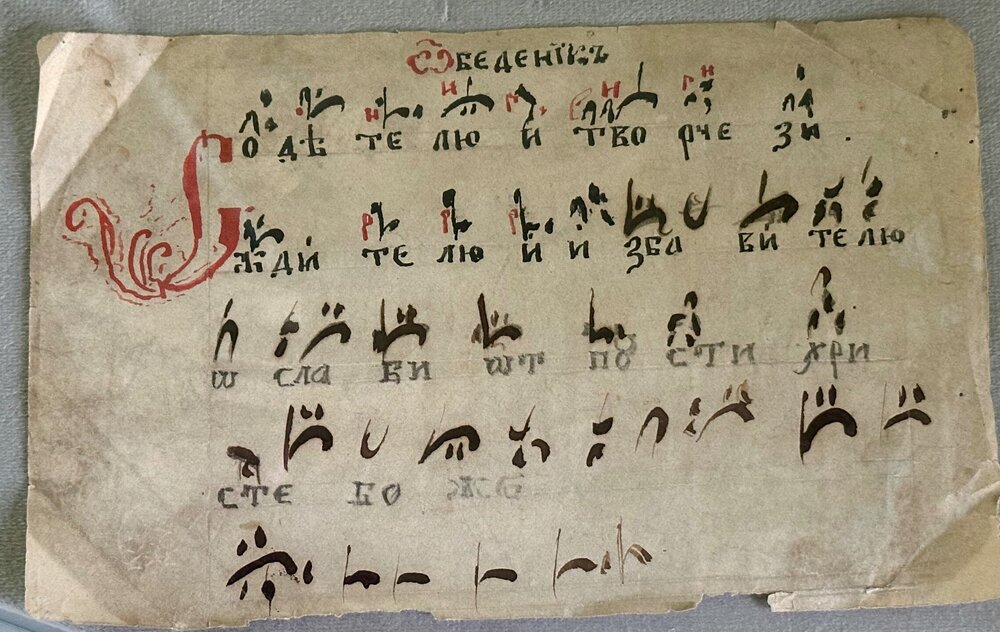 Ѻбеденікъ
С о дѣ те лю и тво рче зи .
жди те лю и и зба ви те лю
ѡ сла ви ѡт пꙋ сти хри
сте бо же